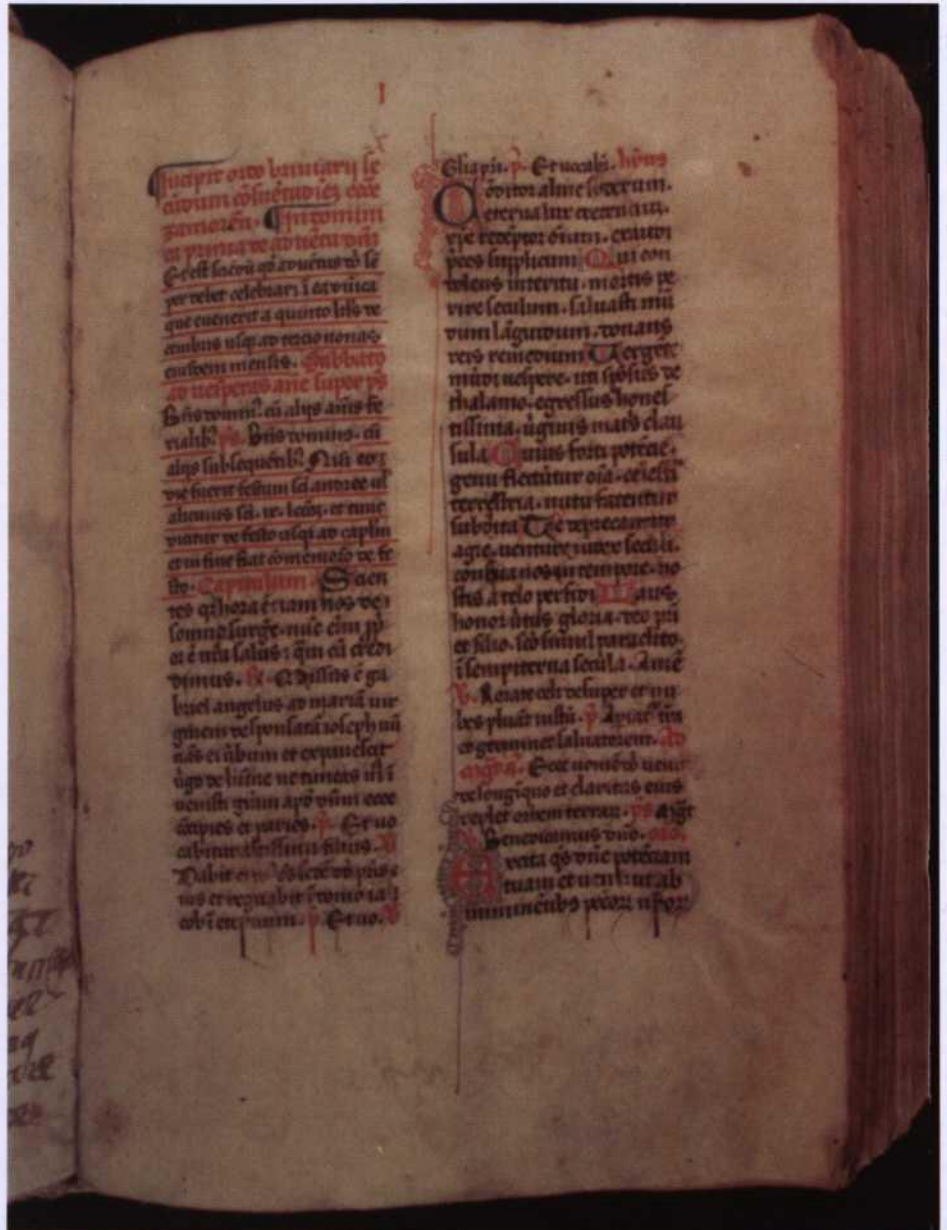 I
Incipit ordo breuiarij se
cūdum cōsuetudīez ecce
zamoreñ. In domini
ca prima de aduētu dñi
Et est sciēdū qd aduētus dñi sē
per debet celebrari ī ea dñica
que euenerit a quinto kłs de
cēmbris usqȝ ad tercio nonas
eiusdem mensis. Sabbato
ad uesperas añe super ps
Bñs dominꝰ cū alijs añis fe
rialibꝰ ps. Bñs dominus. cū
alijs subsequētibꝰ Nisi eo
die fuerit festum sci andree ul
alicuius sci. ix. lecōȝ. et tunc
dicatur de festo usqȝ ad caplm
et in fine fiat comemoȓo de fe
sto. Capitulum. Scien
tes qȝ hora ē iam nos de
somno surgē. nūc eim ꝓp
or ē nrā salus: qm cū credi
dimus. ℟. Missus ē ga
briel angelus ad mariā uir
ginem desponsatā ioseph nū
ciās ei ūbum et expauescit
ūgo de lumē ne timeas mā ī
uenisti grām apd dñm ecce
cōcipies et paries. p̄. Et uo
cabitur altissimi filius. ℣
Dabit ei dñs sedē dd pris e
ius et regnabit ī domo ia
cobi ī eternum. p̄. Et uo. ℣
Gliā pri. p̄. Et uocabī. hȳnus
Cōditor alme siderum.
eterna lux credentiū.
xpe redēptor oīum. exaudi
p̄ces supplicum Qui con
dolens interitu. mortis pe
rire seculum. saluasti mū
dum lāguidum. donans
reis remedium Uergēte
mūdi uespere. uti spōsus de
thalamo. egressus hones
tissima. ūginis matris clau
sula Cuius forti potēcie.
genu flectūtur oīa. celestia
terrestria. nutu fatentur
subdita Te deprecamur
agie. uenture iudex seculi.
conserua nos in tempore. ho
stis a telo perfidi Laus
honor ūtus gloria. deo pri
et filio. sco simul paraclito.
ī sempiterna secula. Amē
℣. Rorate celi desuper et nu
bes pluāt iustū. p̄. Apiatr terra
et germinet saluatorem. Ad
mag̃. a. Ecce nomē dñi uenit
de longiquo et claritas eius
replet orbem terraȝ. ps Mag̃t
Benedicamus dño. oȓo.
Excita qs dñe potēciam
tuam et ueni: ut ab
iminentibȝ peccoȝ nr̄oȝ